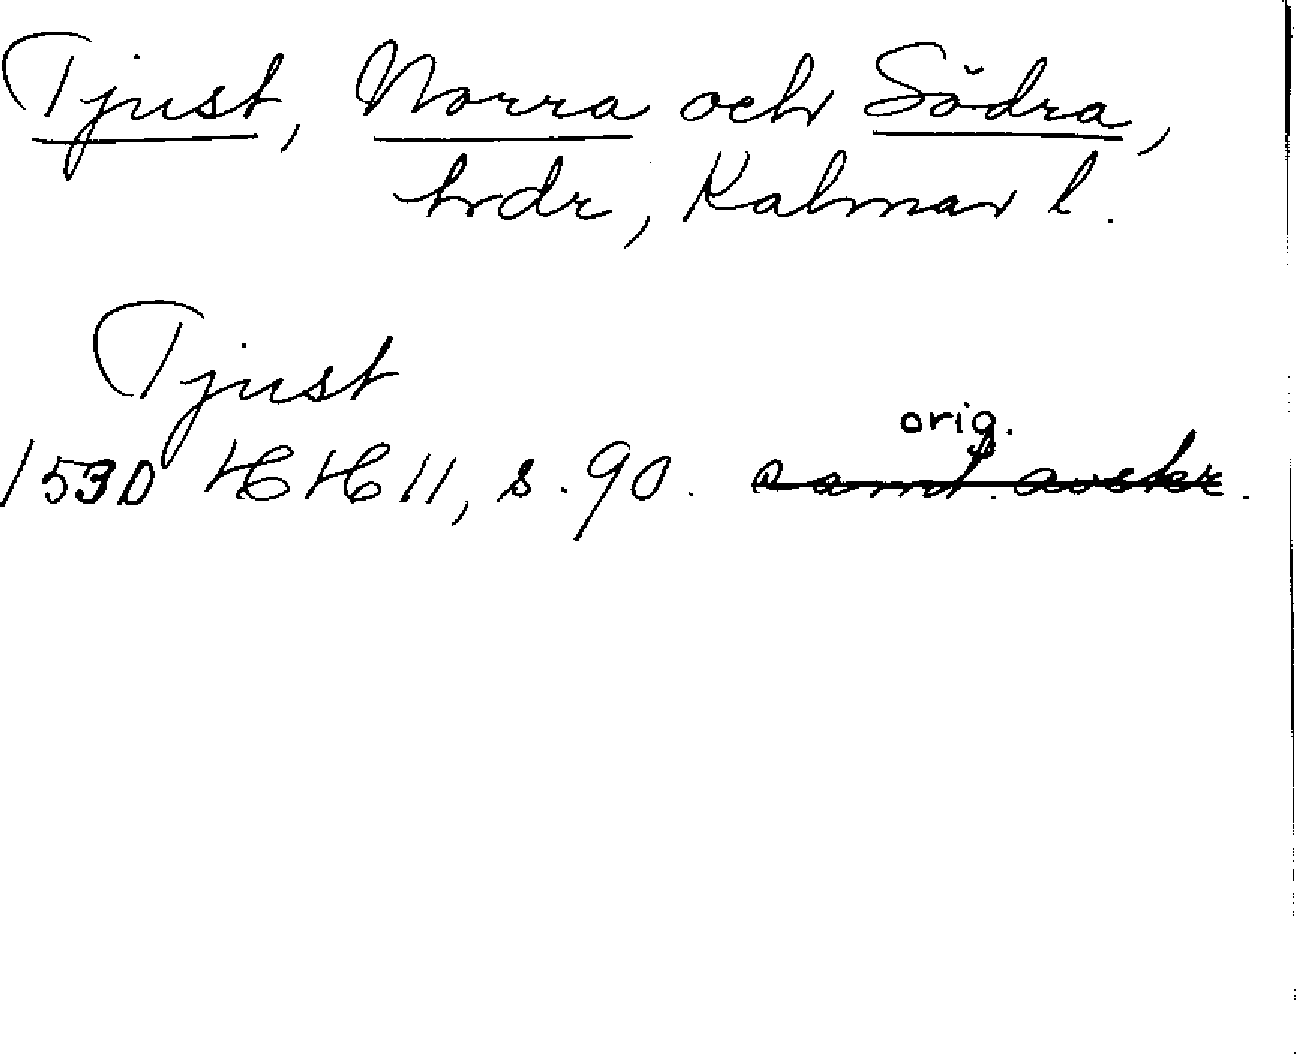 Tjust, Norra och Södra,
hrdr, Kalmar l.
Tjust
orig.
1530 HH 11, s. 90. samt. avskr.